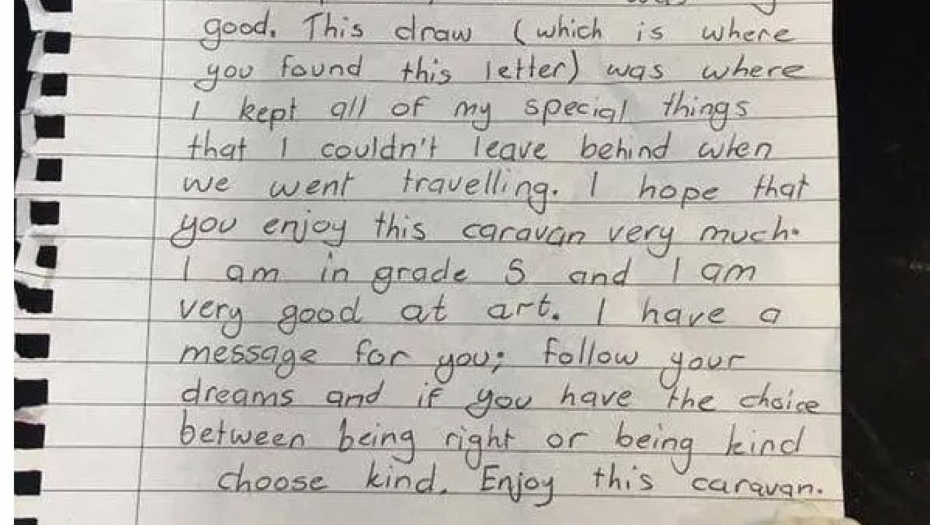 good. This draw (which is where
you found this letter) was where
I kept all of my special things
that I couldn't leave behind when
we went travelling. I hope that
you enjoy this caravan very much.
I am in grade 5 and I am
very good at art. I have a
message for you; follow your
dreams and if you have the choice
between being right or being kind
choose kind. Enjoy this caravan.